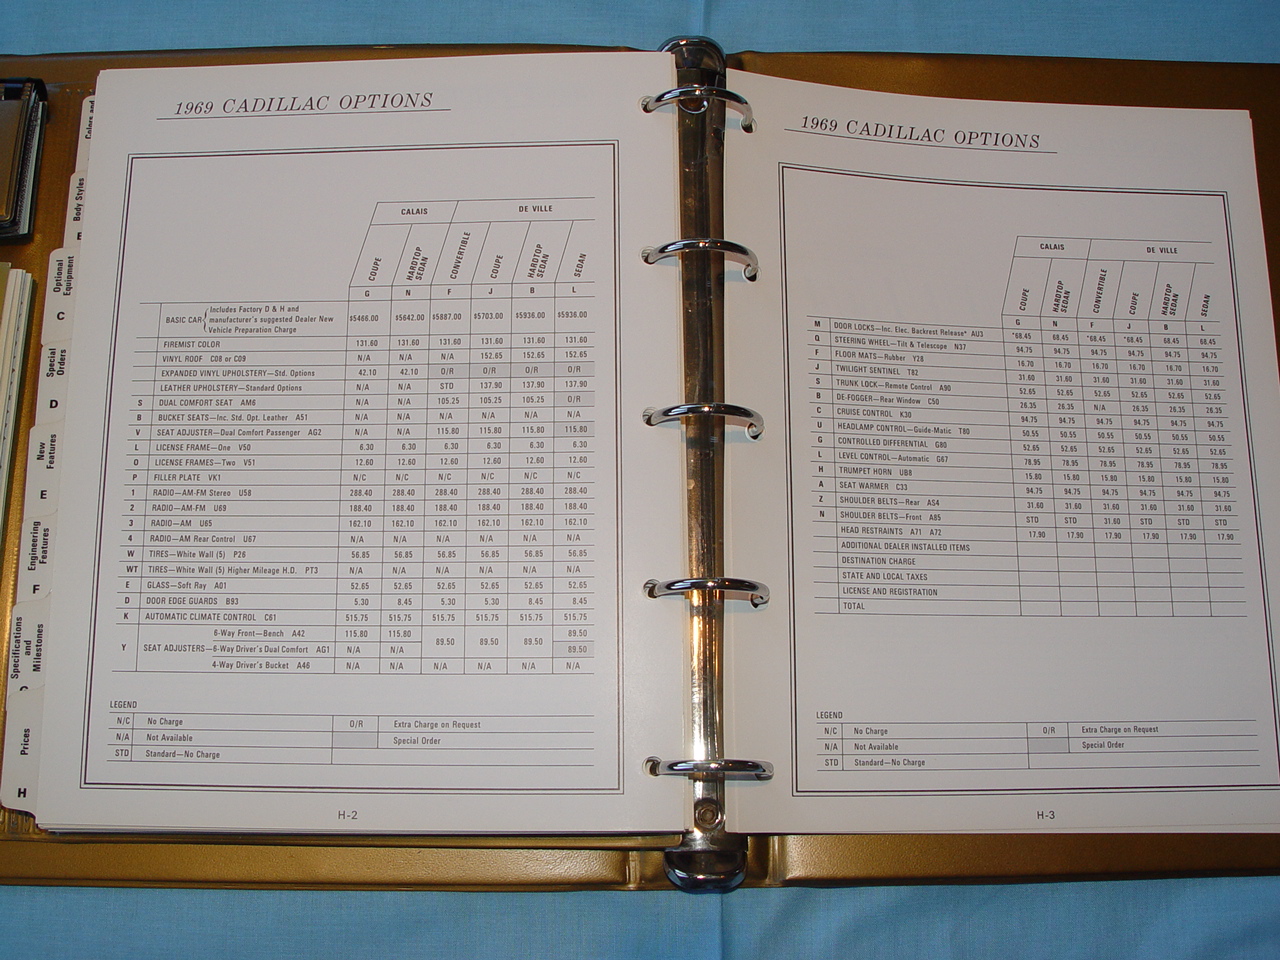 Colors and
Body Styles
Optional
Equipment
C
Special
Orders
D
New
Features
E
Engineering
Features
F
Specifications
and
Milestones
Prices
H
1969 CADILLAC OPTIONS
CALAIS DE VILLE
COUPE HARDTOP SEDAN CONVERTIBLE COUPE HARDTOP SEDAN SEDAN
G N F J B L
BASIC CAR Includes Factory D & H and
manufacturer's suggested Dealer New
Vehicle Preparation Charge
$5466.00 $5642.00 $5887.00 $5703.00 $5936.00 $5936.00
FIREMIST COLOR 131.60 131.60 131.60 131.60 131.60 131.60
VINYL ROOF C08 or C09 N/A N/A 152.65 152.65 152.65
EXPANDED VINYL UPHOLSTERY—Std. Options 42.10 42.10 O/R O/R O/R O/R
LEATHER UPHOLSTERY—Standard Options N/A N/A STD 137.90 137.90 137.90
S DUAL COMFORT SEAT AM6 N/A N/A 105.25 105.25 105.25 O/R
B BUCKET SEATS—Inc. Std. Opt. Leather A51 N/A N/A N/A N/A N/A N/A
V SEAT ADJUSTER—Dual Comfort Passenger AG2 N/A N/A 115.80 115.80 115.80 115.80
L LICENSE FRAME—One V50 6.30 6.30 6.30 6.30 6.30 6.30
O LICENSE FRAMES—Two V51 12.60 12.60 12.60 12.60 12.60 12.60
P FILLER PLATE VK1 N/C N/C N/C N/C N/C N/C
1 RADIO—AM-FM Stereo U58 288.40 288.40 288.40 288.40 288.40 288.40
2 RADIO—AM-FM U69 188.40 188.40 188.40 188.40 188.40 188.40
3 RADIO—AM U65 162.10 162.10 162.10 162.10 162.10 162.10
4 RADIO—AM Rear Control U67 N/A N/A N/A N/A N/A N/A
W TIRES—White Wall (5) P26 56.85 56.85 56.85 56.85 56.85 56.85
WT TIRES—White Wall (5) Higher Mileage H.D. PT3 N/A N/A N/A N/A N/A N/A
E GLASS—Soft Ray A01 52.65 52.65 52.65 52.65 52.65 52.65
D DOOR EDGE GUARDS B93 5.30 8.45 5.30 5.30 8.45 8.45
K AUTOMATIC CLIMATE CONTROL C61 515.75 515.75 515.75 515.75 515.75 515.75
6-Way Front—Bench A42 115.80 115.80 89.50
Y SEAT ADJUSTERS—6-Way Driver's Dual Comfort AG1 N/A N/A 89.50 89.50 89.50 89.50
4-Way Driver's Bucket A46 N/A N/A N/A N/A N/A N/A
LEGEND
N/C No Charge O/R Extra Charge on Request
N/A Not Available Special Order
STD Standard—No Charge
H-2
1969 CADILLAC OPTIONS
CALAIS DE VILLE
COUPE HARDTOP SEDAN CONVERTIBLE COUPE HARDTOP SEDAN SEDAN
G N F J B L
M DOOR LOCKS—Inc. Elec. Backrest Release* AU3 *68.45 68.45 *68.45 *68.45 68.45 68.45
Q STEERING WHEEL—Tilt & Telescope N37 94.75 94.75 94.75 94.75 94.75 94.75
F FLOOR MATS—Rubber Y28 16.70 16.70 16.70 16.70 16.70 16.70
J TWILIGHT SENTINEL T82 31.60 31.60 31.60 31.60 31.60 31.60
S TRUNK LOCK—Remote Control A90 52.65 52.65 52.65 52.65 52.65 52.65
B DE-FOGGER—Rear Window C50 26.35 26.35 N/A 26.35 26.35 26.35
C CRUISE CONTROL K30 94.75 94.75 94.75 94.75 94.75 94.75
U HEADLAMP CONTROL—Guide-Matic T80 50.55 50.55 50.55 50.55 50.55 50.55
G CONTROLLED DIFFERENTIAL G80 52.65 52.65 52.65 52.65 52.65 52.65
L LEVEL CONTROL—Automatic G67 78.95 78.95 78.95 78.95 78.95 78.95
H TRUMPET HORN UB8 15.80 15.80 15.80 15.80 15.80 15.80
A SEAT WARMER C33 94.75 94.75 94.75 94.75 94.75 94.75
Z SHOULDER BELTS—Rear AS4 31.60 31.60 31.60 31.60 31.60 31.60
N SHOULDER BELTS—Front A85 STD STD 31.60 STD STD STD
HEAD RESTRAINTS A71 A72 17.90 17.90 17.90 17.90 17.90 17.90
ADDITIONAL DEALER INSTALLED ITEMS
DESTINATION CHARGE
STATE AND LOCAL TAXES
LICENSE AND REGISTRATION
TOTAL
LEGEND
N/C No Charge O/R Extra Charge on Request
N/A Not Available Special Order
STD Standard—No Charge
H-3